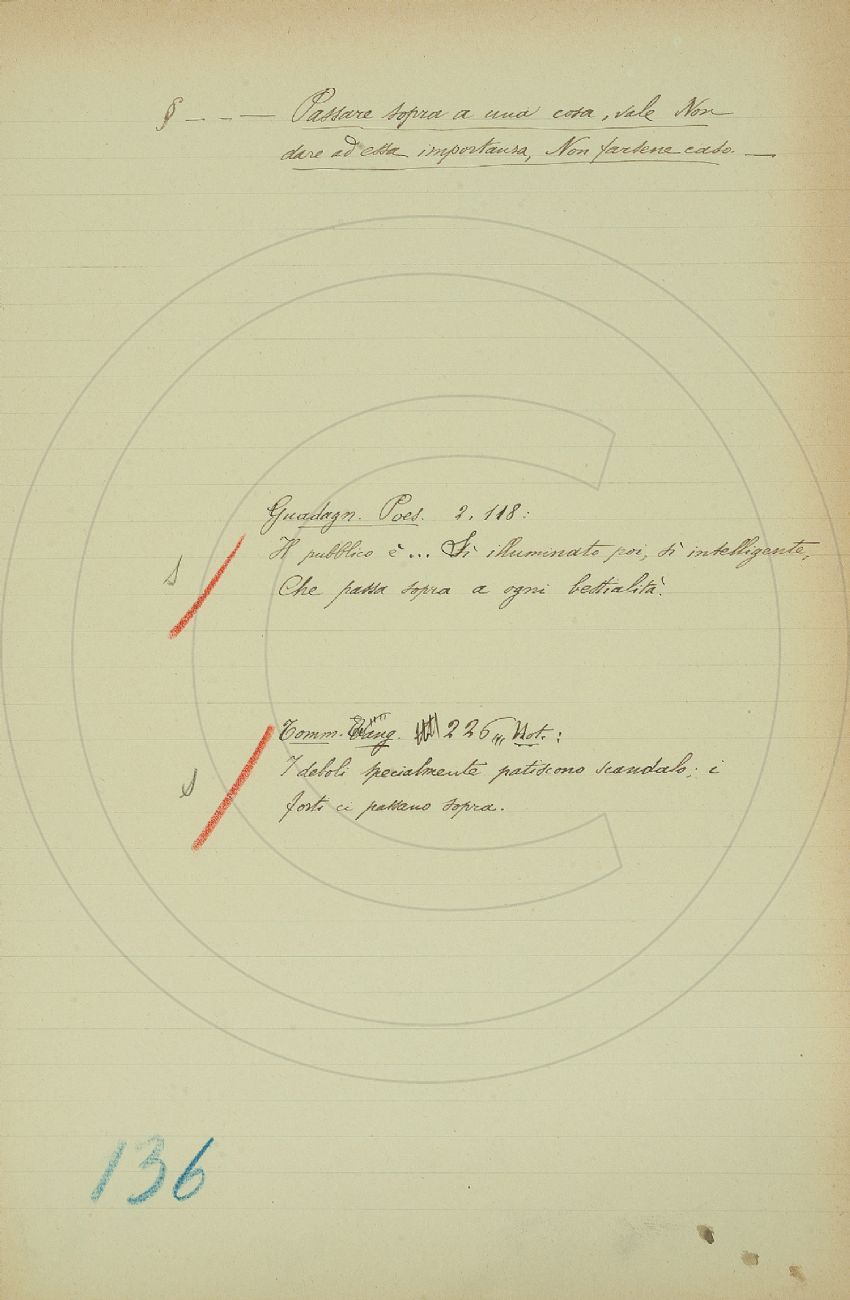 § _ _ _ — Passare sopra a una cosa, vale Non
dare ad essa importanza, Non farsene caso. —
Guadagn. Poes. 2. 118:
Il pubblico è ... Sì illuminato poi, sì intelligente,
s
Che passa sopra a ogni bestialità.
Tomm. Vang. 226, Not.:
I deboli specialmente patiscono scandalo; i
s
forti ci passano sopra.
136